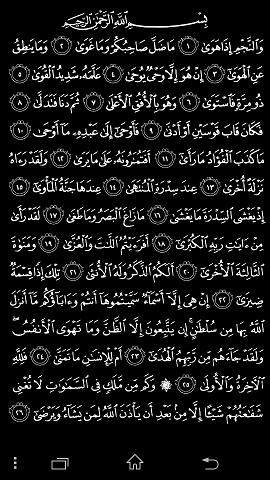 بِسْمِ ٱللَّهِ ٱلرَّحْمَٰنِ ٱلرَّحِيمِ
وَٱلنَّجْمِ إِذَا هَوَىٰ ١ مَا ضَلَّ صَاحِبُكُمْ وَمَا غَوَىٰ ٢ وَمَا يَنطِقُ
عَنِ ٱلْهَوَىٰٓ ٣ إِنْ هُوَ إِلَّا وَحْىٌ يُوحَىٰ ٤ عَلَّمَهُۥ شَدِيدُ ٱلْقُوَىٰ ٥
ذُو مِرَّةٍ فَٱسْتَوَىٰ ٦ وَهُوَ بِٱلْأُفُقِ ٱلْأَعْلَىٰ ٧ ثُمَّ دَنَا فَتَدَلَّىٰ ٨
فَكَانَ قَابَ قَوْسَيْنِ أَوْ أَدْنَىٰ ٩ فَأَوْحَىٰٓ إِلَىٰ عَبْدِهِۦ مَآ أَوْحَىٰ ١٠
مَا كَذَبَ ٱلْفُؤَادُ مَا رَأَىٰٓ ١١ أَفَتُمَٰرُونَهُۥ عَلَىٰ مَا يَرَىٰ ١٢ وَلَقَدْ رَءَاهُ
نَزْلَةً أُخْرَىٰ ١٣ عِندَ سِدْرَةِ ٱلْمُنتَهَىٰ ١٤ عِندَهَا جَنَّةُ ٱلْمَأْوَىٰٓ ١٥
إِذْ يَغْشَى ٱلسِّدْرَةَ مَا يَغْشَىٰ ١٦ مَا زَاغَ ٱلْبَصَرُ وَمَا طَغَىٰ ١٧ لَقَدْ رَأَىٰ
مِنْ ءَايَٰتِ رَبِّهِ ٱلْكُبْرَىٰٓ ١٨ أَفَرَءَيْتُمُ ٱللَّٰتَ وَٱلْعُزَّىٰ ١٩ وَمَنَوٰةَ
ٱلثَّالِثَةَ ٱلْأُخْرَىٰٓ ٢٠ أَلَكُمُ ٱلذَّكَرُ وَلَهُ ٱلْأُنثَىٰ ٢١ تِلْكَ إِذًا قِسْمَةٌ
ضِيزَىٰٓ ٢٢ إِنْ هِىَ إِلَّآ أَسْمَآءٌ سَمَّيْتُمُوهَآ أَنتُمْ وَءَابَآؤُكُم مَّآ أَنزَلَ
ٱللَّهُ بِهَا مِن سُلْطَٰنٍ إِن يَتَّبِعُونَ إِلَّا ٱلظَّنَّ وَمَا تَهْوَى ٱلْأَنفُسُ ۖ
وَلَقَدْ جَآءَهُم مِّن رَّبِّهِمُ ٱلْهُدَىٰٓ ٢٣ أَمْ لِلْإِنسَٰنِ مَا تَمَنَّىٰ ٢٤ فَلِلَّهِ
ٱلْءَاخِرَةُ وَٱلْأُولَىٰ ٢٥ ۞ وَكَم مِّن مَّلَكٍ فِى ٱلسَّمَٰوَٰتِ لَا تُغْنِى
شَفَٰعَتُهُمْ شَيْـًٔا إِلَّا مِنۢ بَعْدِ أَن يَأْذَنَ ٱللَّهُ لِمَن يَشَآءُ وَيَرْضَىٰٓ ٢٦